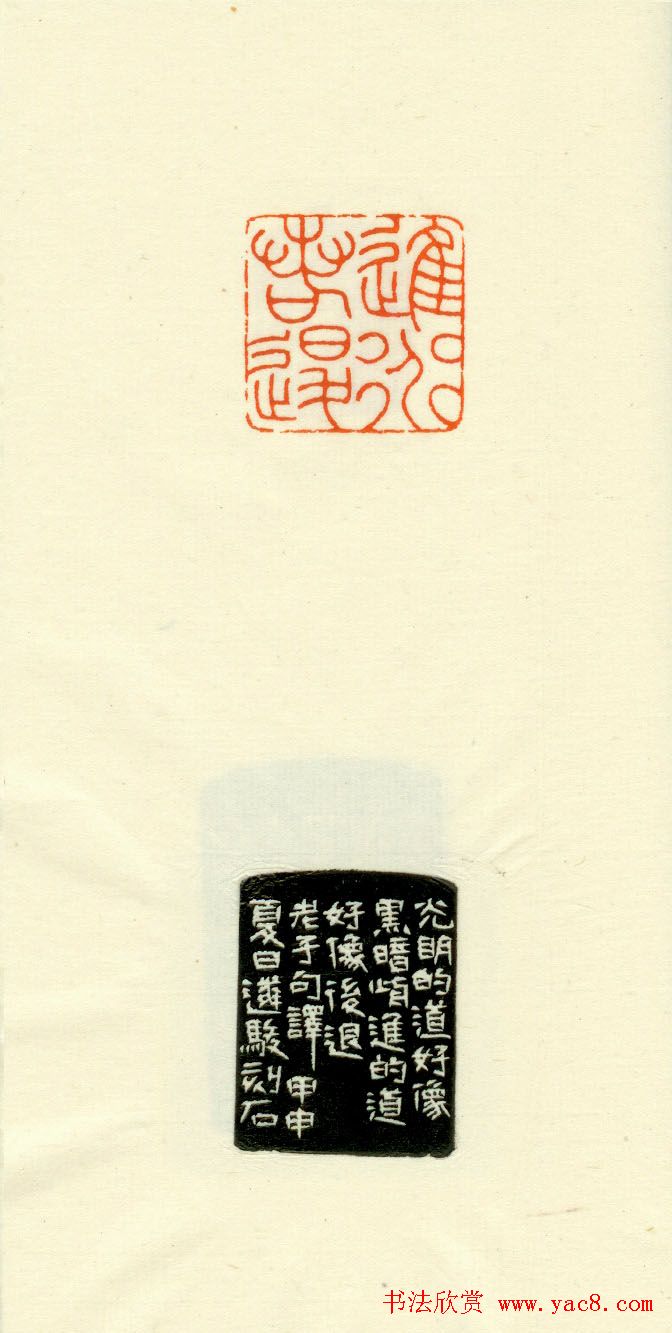 進道
若退
光明的道好像
黑暗前進的道
好像後退
老子句譯 甲申
夏日駿刻石
书法欣赏 www.yac8.com